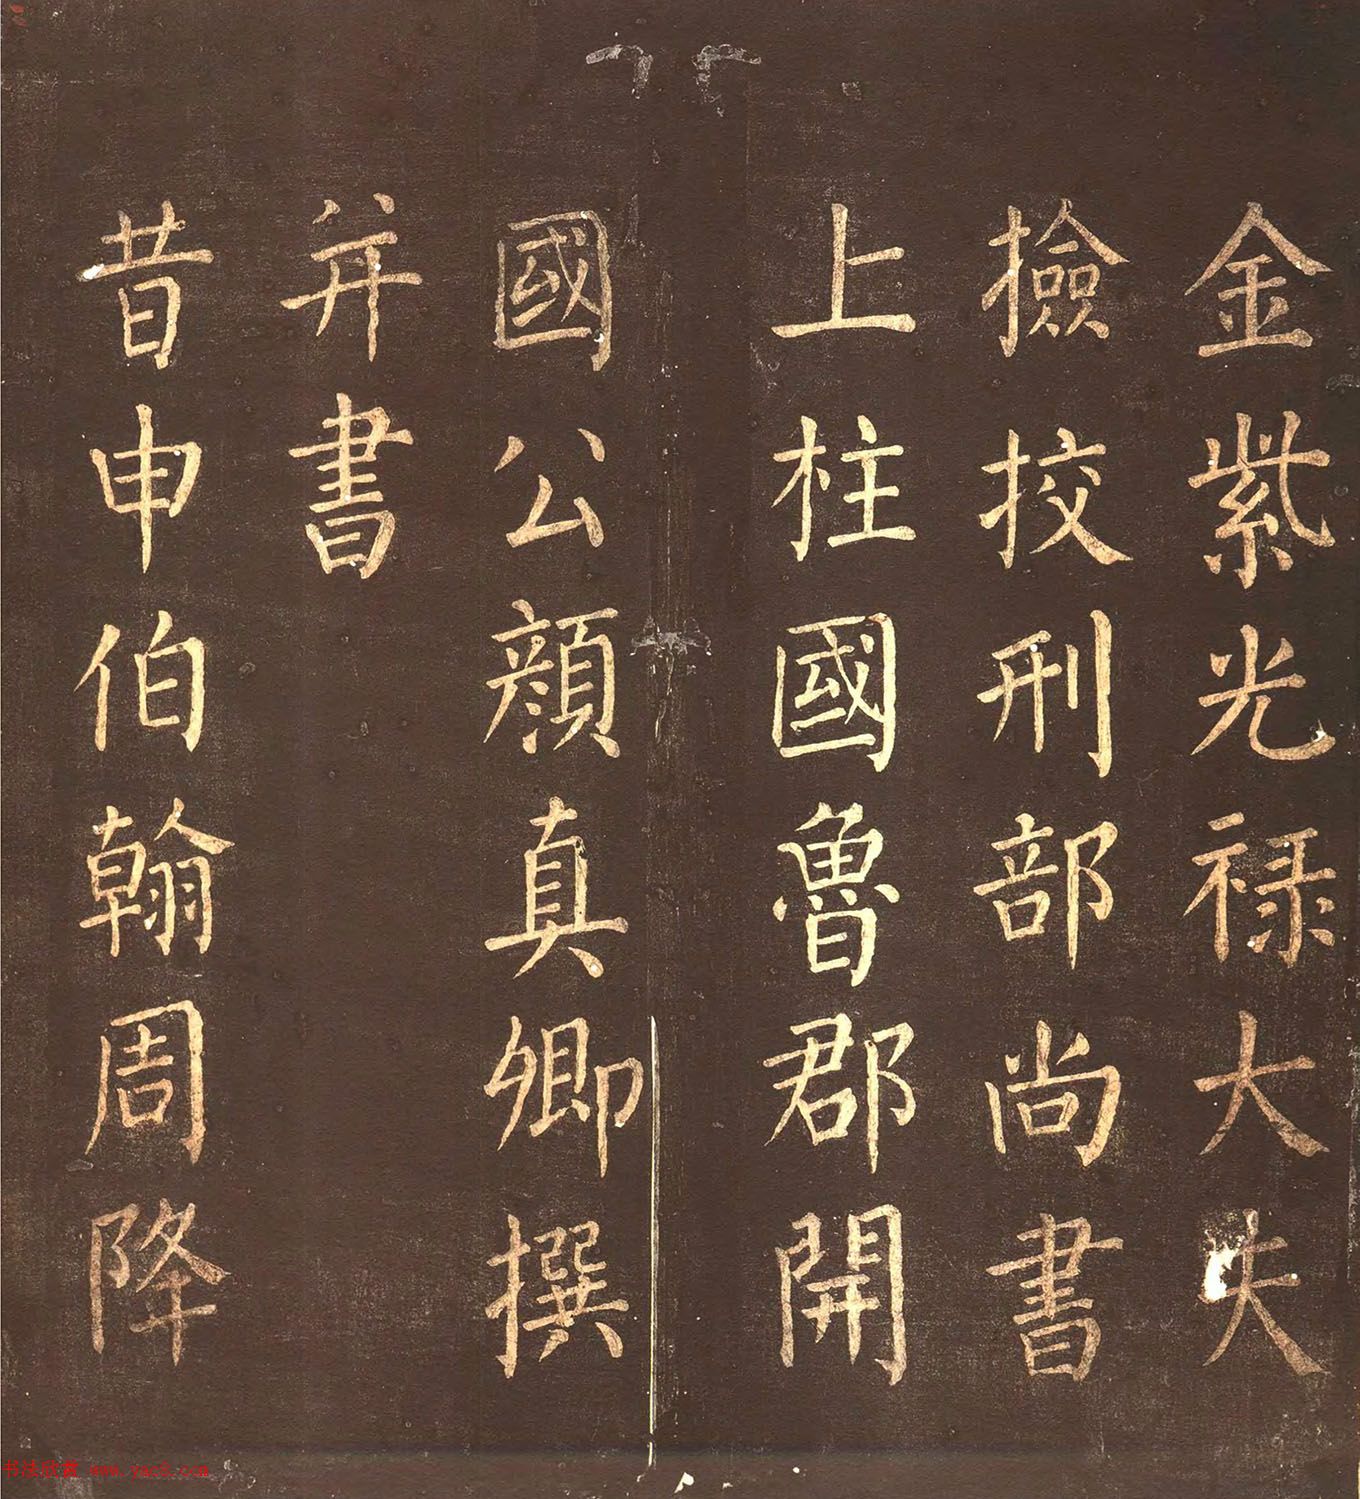 金紫光禄大夫
撿挍刑部尚書
上柱國魯郡開
國公顔真卿撰
并書
昔申伯翰周降
书法欣赏 www.yac8.com